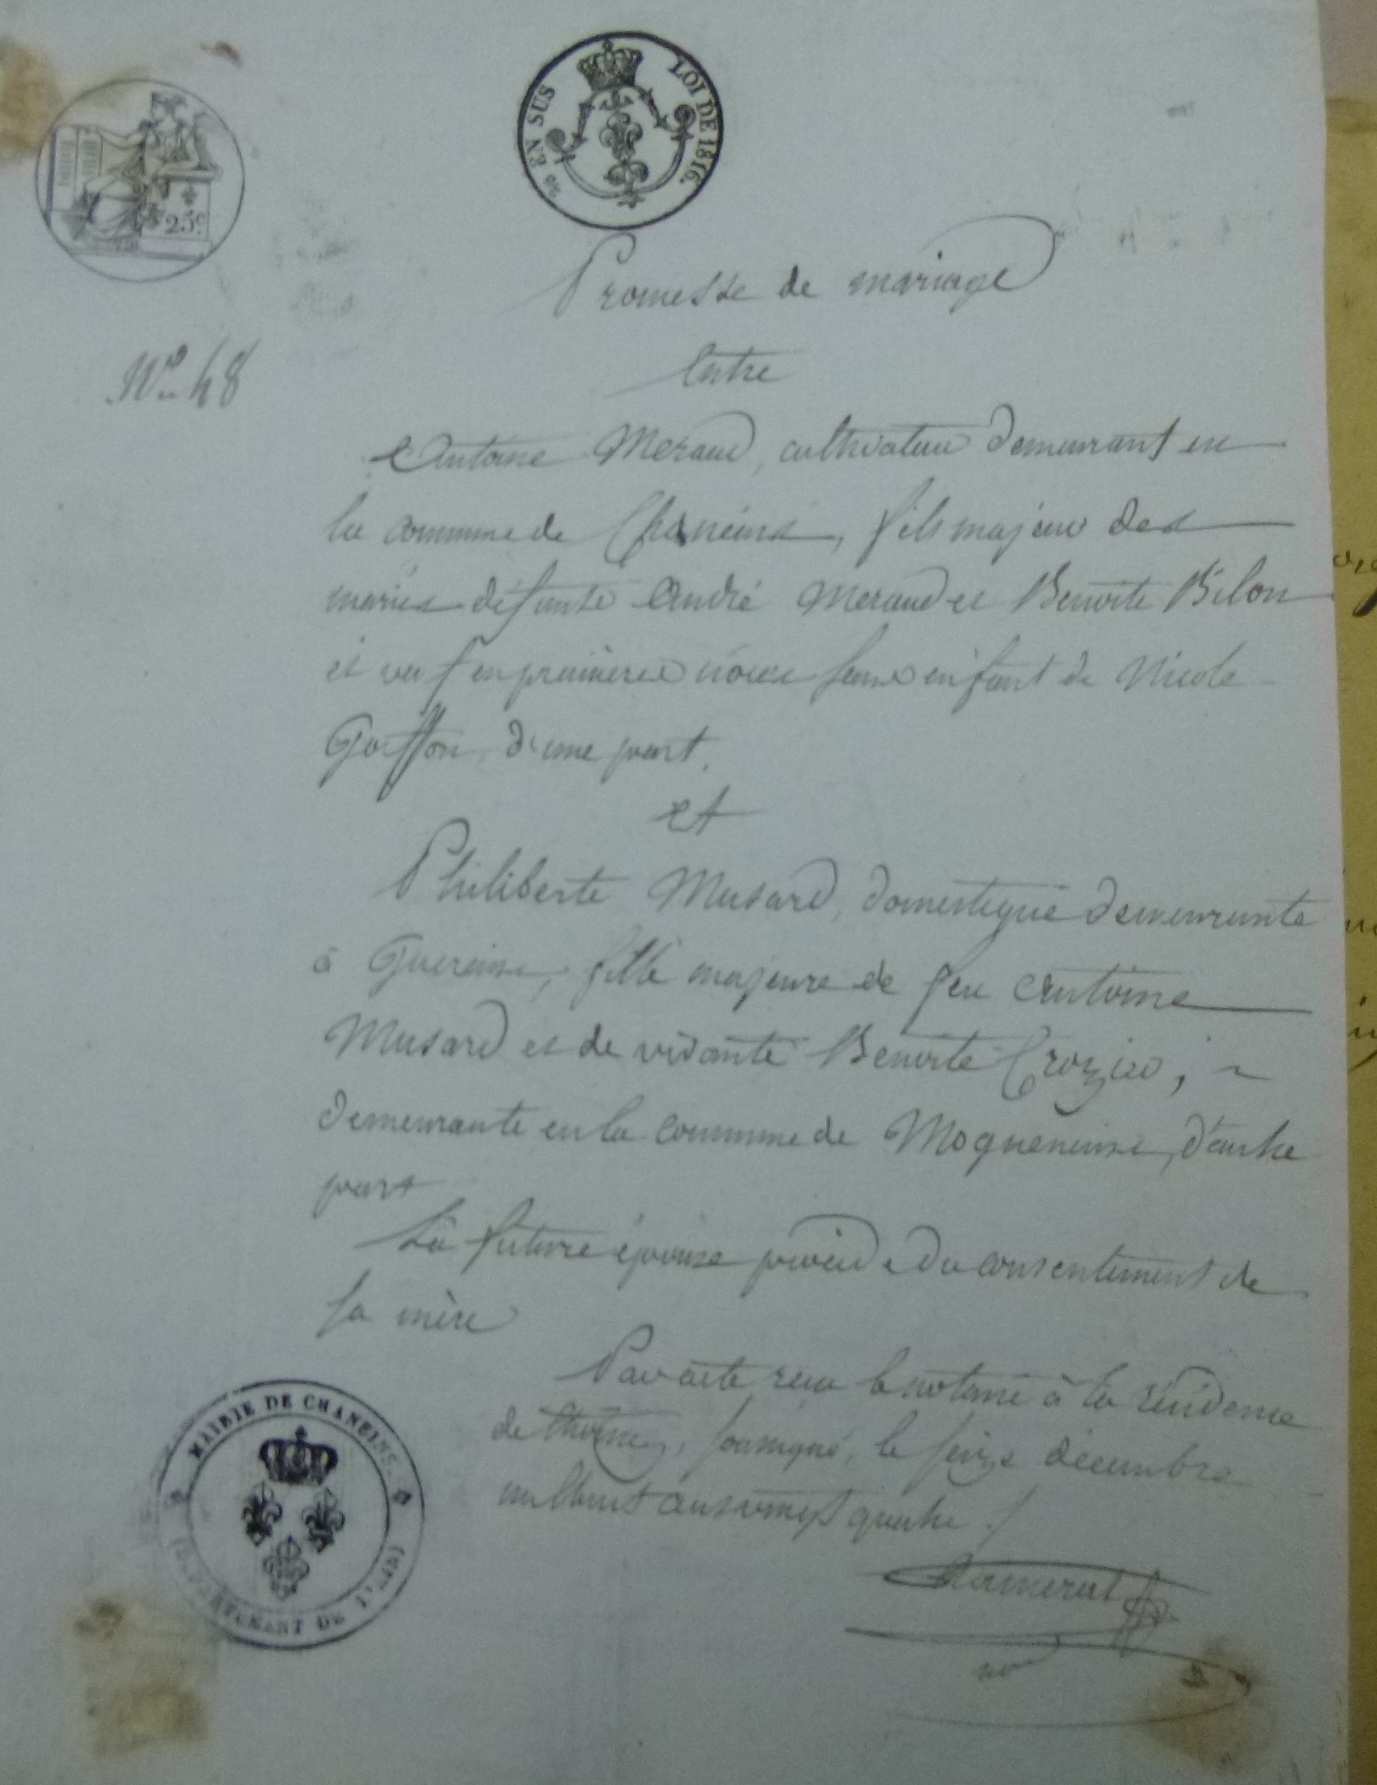 EN SUS
LOI DE 1816.
25.c
Promesse de mariage
Entre
No. 48
Antoine Meraud, cultivateur demeurant en
la commune de Chaneins, fils majeur des
mariés défunts André Meraud et Benoite Bilon
et veuf en premieres nôces sans enfant de Nicole
Goiffon, d'une part.
et
Philiberte Musard, domestique demeurante
à Guereins, fille majeure de feu Antoine
Musard et de vivante Benoite Crozier,
demeurante en la commune de Mogneneins, d'autre
part
La future épouse procède du consentement de
sa mère
Par acte reçu le notaire à la résidence
de Thoissey, soussigné, le seize décembre
mil huit cent vingt quatre.
MAIRIE DE CHANEINS.
(DÉPARTEMENT DE L'AIN)